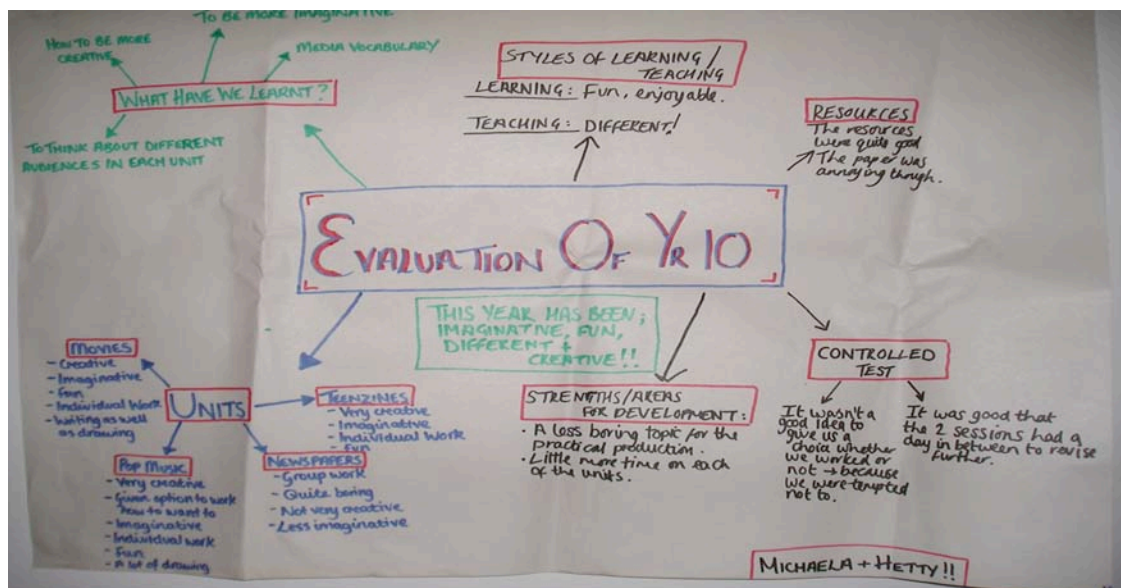 TO BE MORE IMAGINATIVE
HOW TO BE MORE
CREATIVE
MEDIA VOCABULARY
WHAT HAVE WE LEARNT?
TO THINK ABOUT DIFFERENT
AUDIENCES IN EACH UNIT
STYLES OF LEARNING/
TEACHING
LEARNING: Fun, enjoyable.
TEACHING: DIFFERENT!
RESOURCES
The resources
were quite good
The paper was
annoying though.
EVALUATION OF YR 10
THIS YEAR HAS BEEN;
IMAGINATIVE, FUN,
DIFFERENT +
CREATIVE!!
MOVIES
- Creative
- Imaginative
- Fun
- Individual Work
- Writing as well
as drawing
UNITS
TEENZINES
- Very creative
- Imaginative
- Individual work
- Fun
POP MUSIC
- Very creative
- Given option to work
how to want to
- Imaginative
- Individual work
- Fun
- A lot of drawing
NEWSPAPERS
- Group work
- Quite boring
- Not very creative
- Less imaginative
STRENGTHS/AREAS
FOR DEVELOPMENT:
• A less boring topic for the
practical production.
• Little more time on each
of the units.
CONTROLLED
TEST
It wasn't a
good idea to
give us a
choice whether
we worked or
not → because
we were tempted
not to.
It was good that
the 2 sessions had a
day in between to revise
further.
MICHAELA + HETTY!!